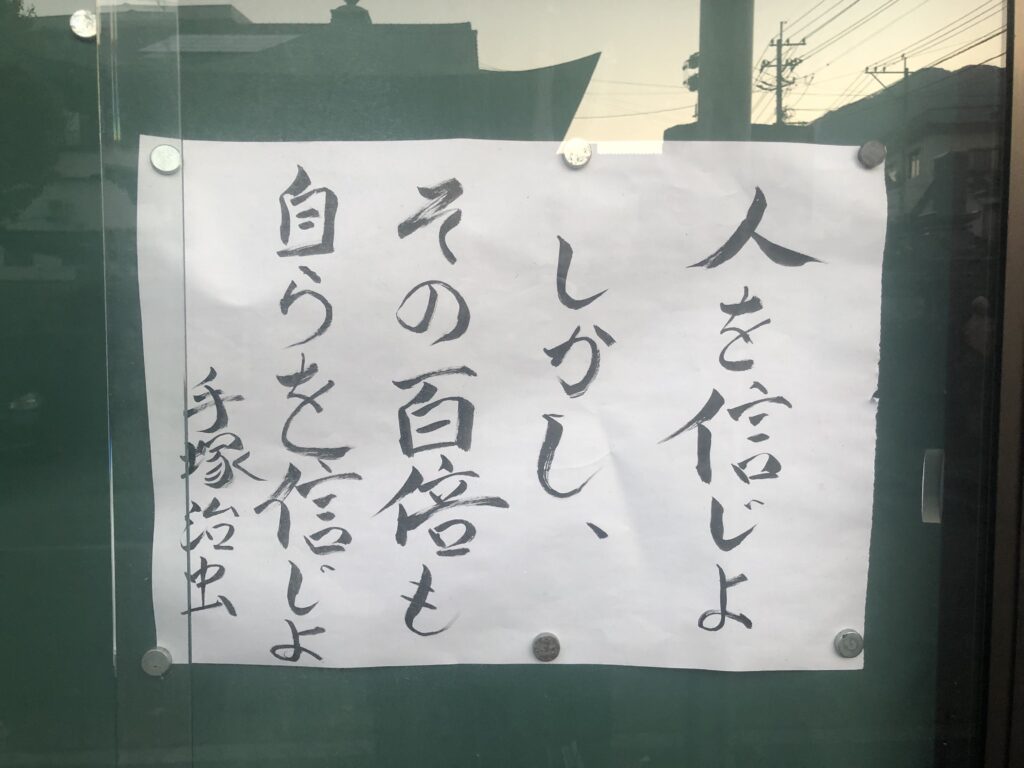 人を信じよ
しかし、
その百倍も
自らを信じよ
手塚治虫